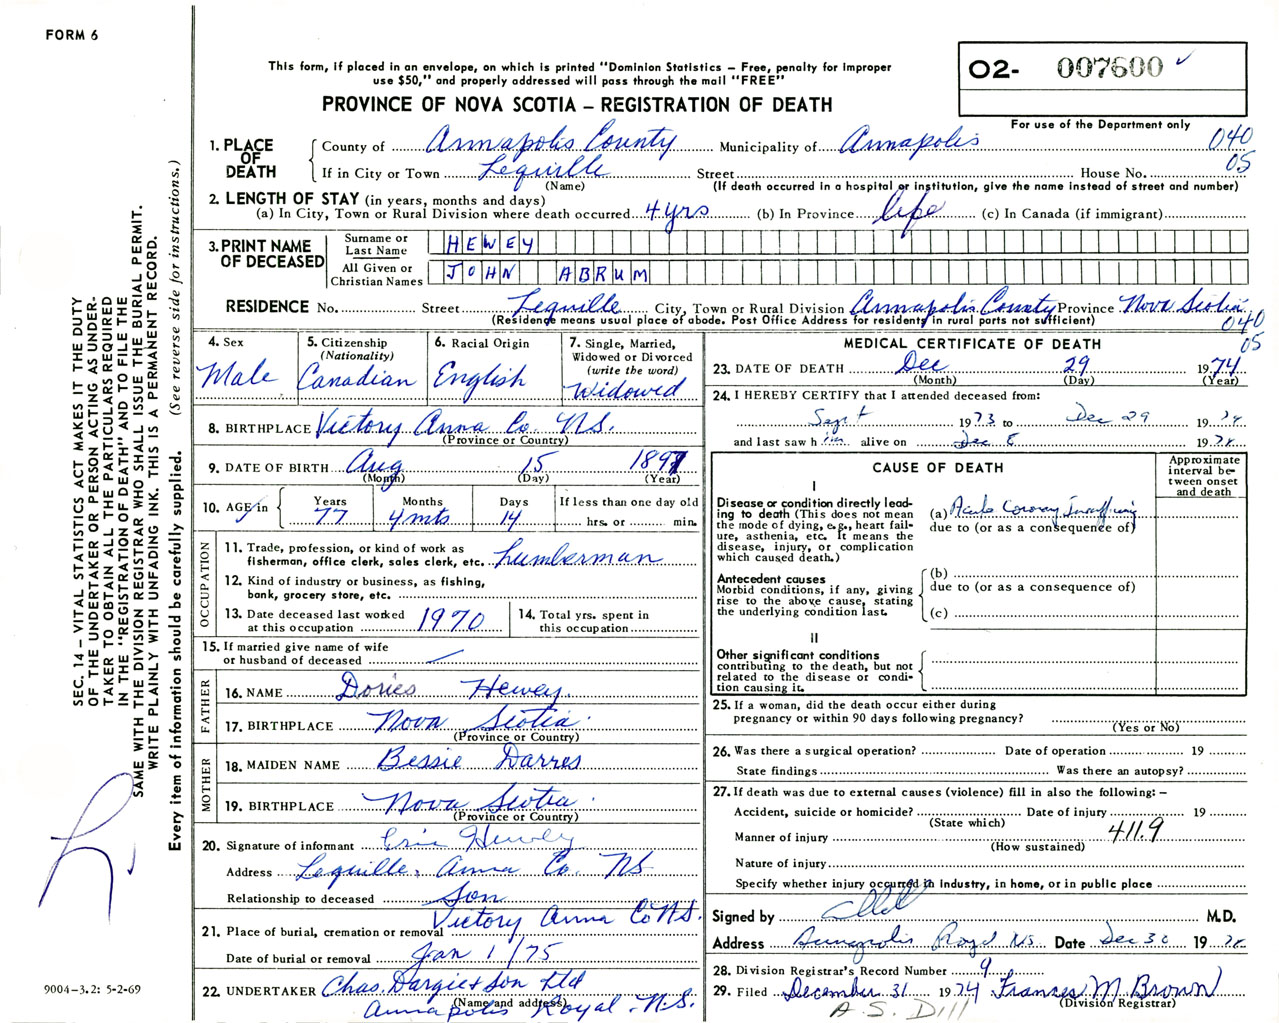 FORM 6
This form, if placed in an envelope, on which is printed "Dominion Statistics – Free, penalty for improper
use $50," and properly addressed will pass through the mail "FREE"
PROVINCE OF NOVA SCOTIA – REGISTRATION OF DEATH
O2- 007600 ✓
For use of the Department only
040
05
1. PLACE OF DEATH
County of Annapolis County Municipality of Annapolis
If in City or Town Lequille Street House No.
(Name) (If death occurred in a hospital or institution, give the name instead of street and number)
2. LENGTH OF STAY (in years, months and days)
(a) In City, Town or Rural Division where death occurred 4 yrs (b) In Province life (c) In Canada (if immigrant)
3. PRINT NAME OF DECEASED
Surname or Last Name HEWEY
All Given or Christian Names JOHN ABRUM
RESIDENCE No. Street Lequille City, Town or Rural Division Annapolis County Province Nova Scotia
(Residence means usual place of abode. Post Office Address for residents in rural parts not sufficient)
040
05
4. Sex Male
5. Citizenship (Nationality) Canadian
6. Racial Origin English
7. Single, Married, Widowed or Divorced (write the word) Widowed
8. BIRTHPLACE Victory Anna Co. N.S.
(Province or Country)
9. DATE OF BIRTH Aug 15 1897
(Month) (Day) (Year)
10. AGE in Years 77 Months 4 mts Days 14 If less than one day old hrs. or min.
OCCUPATION
11. Trade, profession, or kind of work as
fisherman, office clerk, sales clerk, etc. Lumberman
12. Kind of industry or business, as fishing,
bank, grocery store, etc.
13. Date deceased last worked
at this occupation 1970
14. Total yrs. spent in
this occupation
15. If married give name of wife
or husband of deceased —
FATHER
16. NAME Dories Hewey
17. BIRTHPLACE Nova Scotia
(Province or Country)
MOTHER
18. MAIDEN NAME Bessie Darres
19. BIRTHPLACE Nova Scotia
(Province or Country)
20. Signature of informant Eric Hewey
Address Lequille, Anna Co. NS
Relationship to deceased Son
21. Place of burial, cremation or removal Victory Anna Co N.S.
Date of burial or removal Jan 1/75
22. UNDERTAKER Chas. Dargie & Son Ltd
(Name and address) Annapolis Royal N.S.
MEDICAL CERTIFICATE OF DEATH
23. DATE OF DEATH Dec 29 1974
(Month) (Day) (Year)
24. I HEREBY CERTIFY that I attended deceased from:
Sept 1973 to Dec 29 1974
and last saw him alive on Dec 8 1974
CAUSE OF DEATH
Approximate interval between onset and death
I
Disease or condition directly lead-
ing to death (This does not mean
the mode of dying, e.g., heart fail-
ure, asthenia, etc. It means the
disease, injury, or complication
which caused death.)
(a) Acute Coronary Insufficiency
due to (or as a consequence of)
Antecedent causes
Morbid conditions, if any, giving
rise to the above cause, stating
the underlying condition last.
(b)
due to (or as a consequence of)
(c)
II
Other significant conditions
contributing to the death, but not
related to the disease or condi-
tion causing it.
25. If a woman, did the death occur either during
pregnancy or within 90 days following pregnancy?
(Yes or No)
26. Was there a surgical operation? Date of operation 19
State findings Was there an autopsy?
27. If death was due to external causes (violence) fill in also the following: –
Accident, suicide or homicide? Date of injury 19
(State which)
411.9
Manner of injury
(How sustained)
Nature of injury
Specify whether injury occurred in industry, in home, or in public place
Signed by M.D.
Address Annapolis Royal NS Date Dec 30 1974
28. Division Registrar's Record Number 9
29. Filed December 31 1974 Frances M Brown
(Division Registrar)
A.S. Dill
SEC. 14 – VITAL STATISTICS ACT MAKES IT THE DUTY
OF THE UNDERTAKER OR PERSON ACTING AS UNDER-
TAKER TO OBTAIN ALL THE PARTICULARS REQUIRED
IN THE "REGISTRATION OF DEATH" AND TO FILE THE
SAME WITH THE DIVISION REGISTRAR WHO SHALL ISSUE THE BURIAL PERMIT.
WRITE PLAINLY WITH UNFADING INK. THIS IS A PERMANENT RECORD.
Every item of information should be carefully supplied. (See reverse side for instructions.)
9004-3.2: 5-2-69